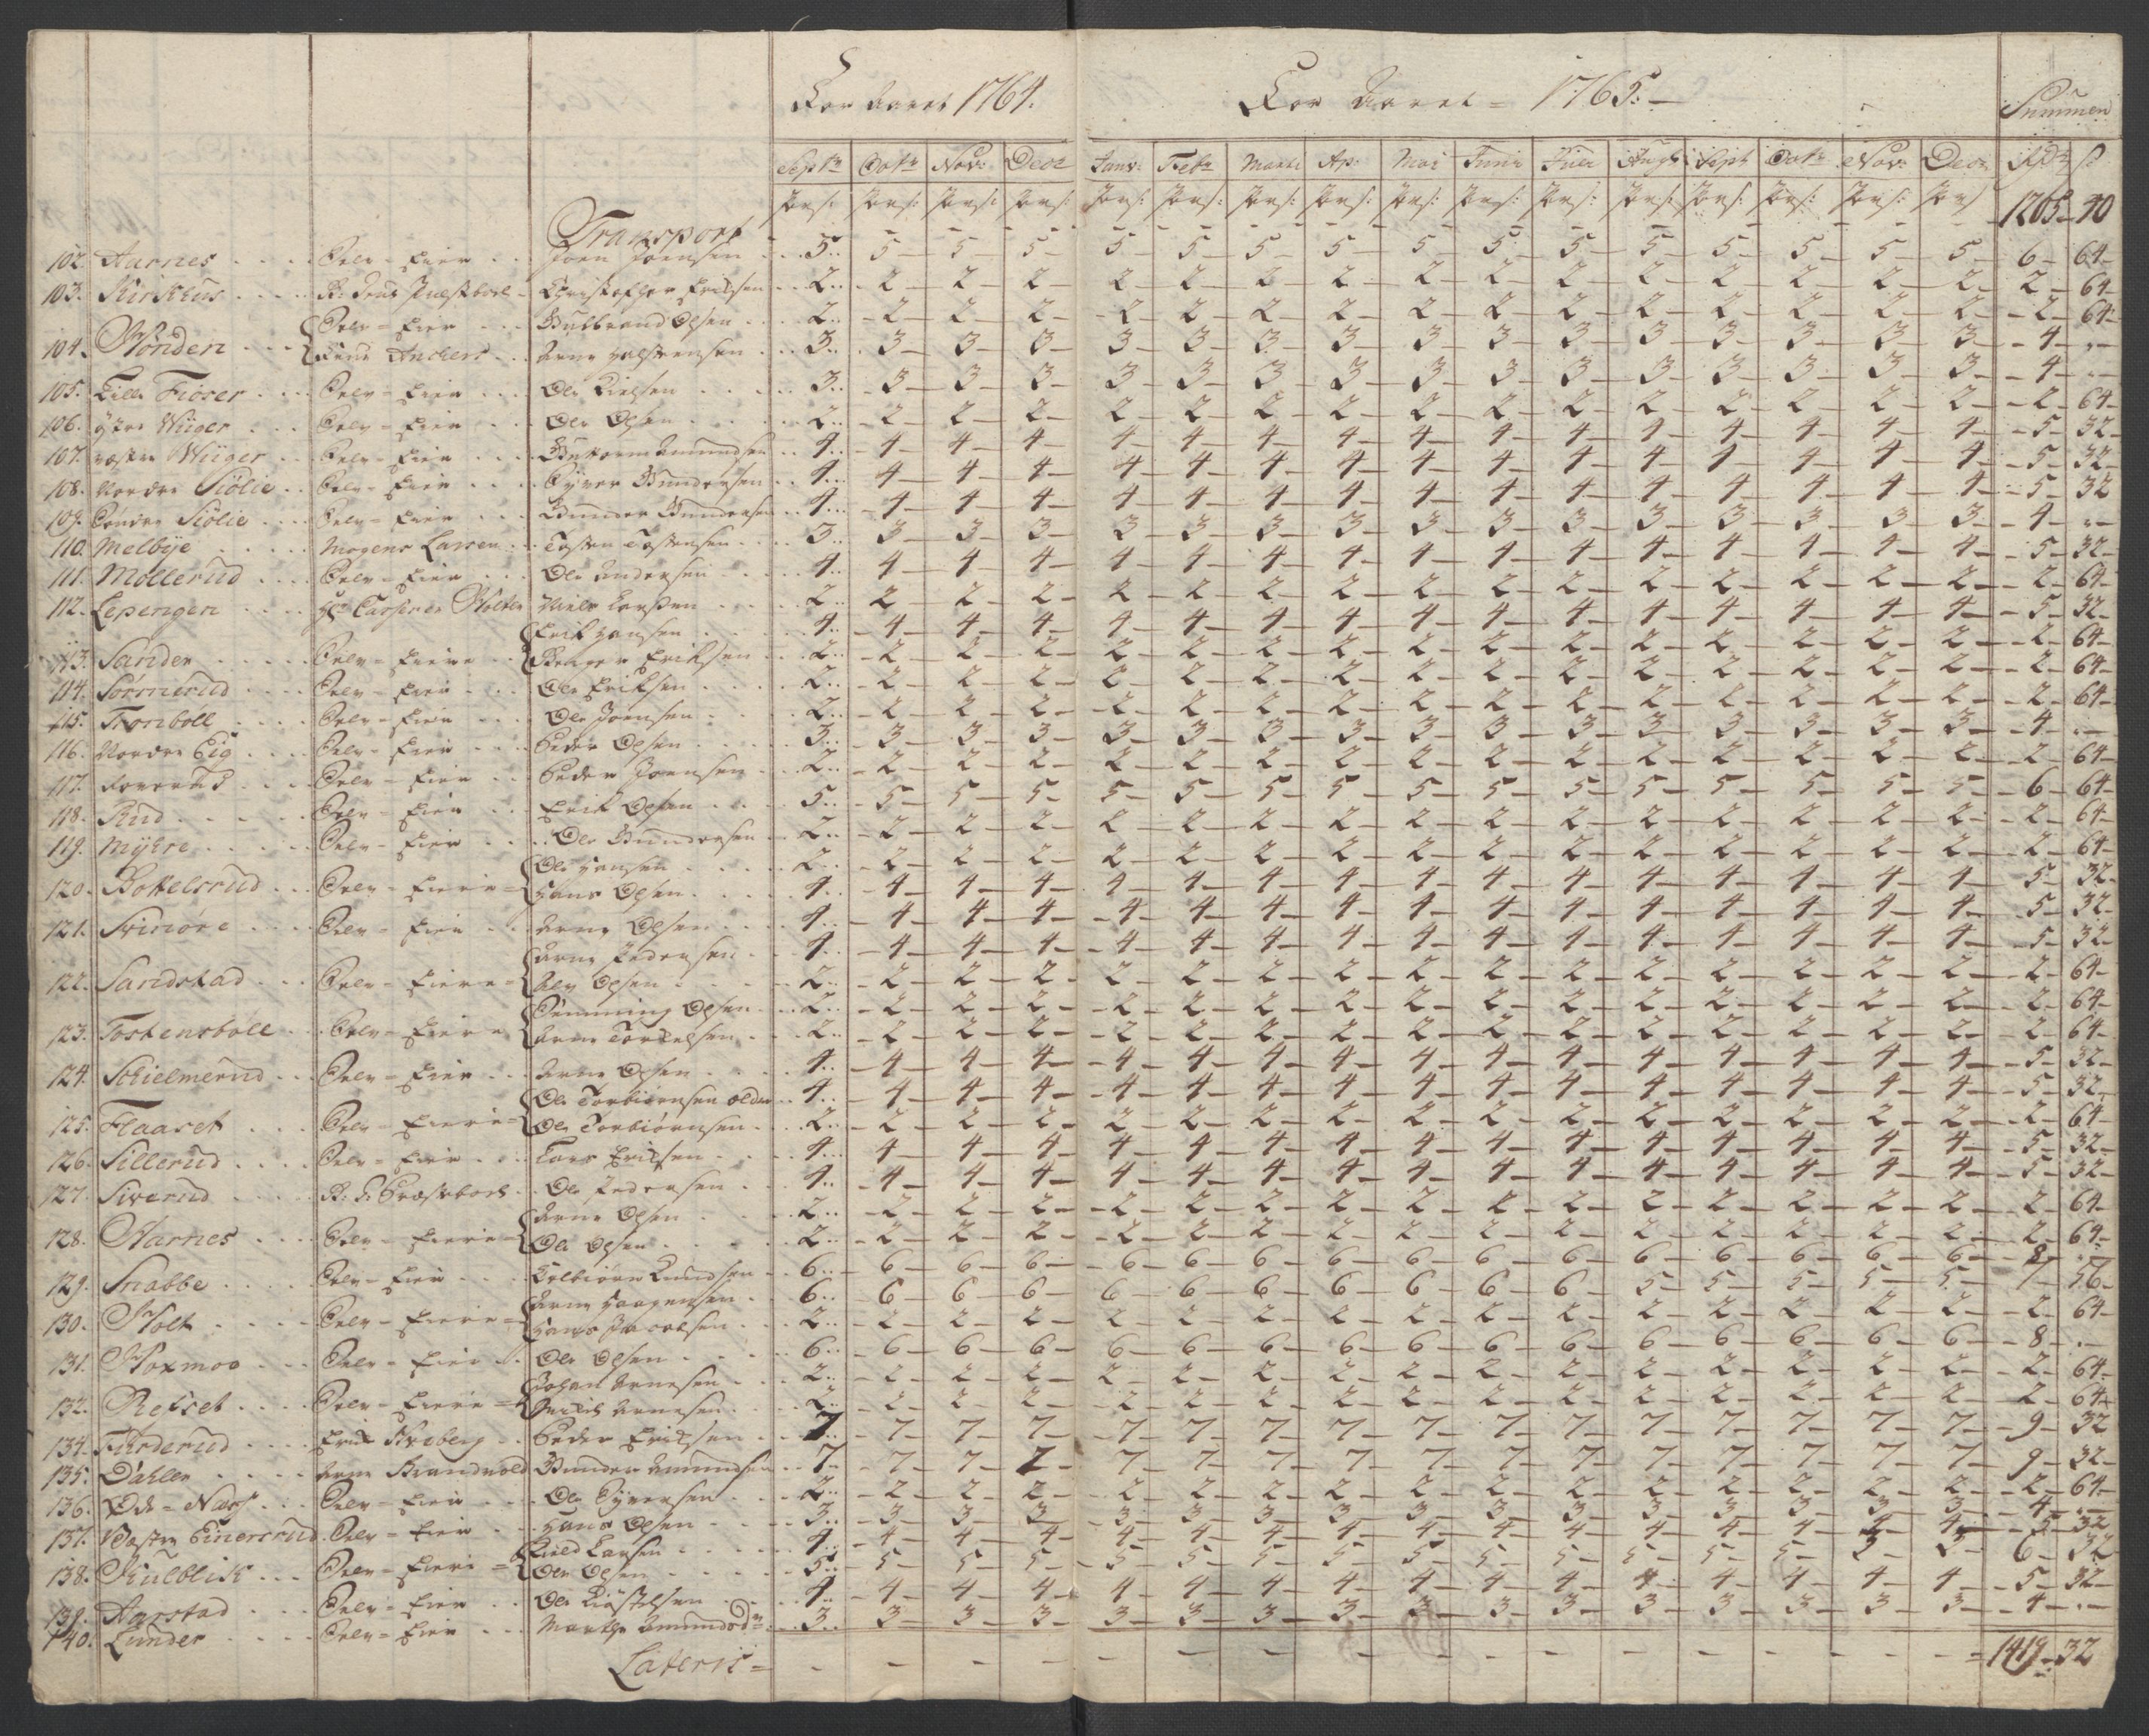 For Aaret 1764. For Aaret = 1765. Summen
Septr Octr Novr Decr Janv: Febr Marti Ap: Mai Junii Julii Augs Sept Octr Novr Decr Rdr s
Pers: Pers: Pers: Pers: Pers: Pers: Pers: Pers: Pers: Pers: Pers: Pers: Pers: Pers: Pers: Pers
Transport 1205 - 40
102. Aarnes Selv - Eier Joen Joensen 5 5 5 5 5 5 5 5 5 5 5 5 5 5 5 5 6 64
103. Kirkhus Christopher Erichsen 2 2 2 2 2 2 2 2 2 2 2 2 2 2 2 2 2 64
Selv = Eier Gulbrand Olsen 2 2 2 2 2 2 2 2 2 2 2 2 2 2 2 2 2 64
104. Anders Arne 3 3 3 3 3 3 3 3 3 3 3 3 3 3 3 3 4 "
105. Lille Fioser Selv = Eier Ole 3 3 3 3 3 3 3 3 3 3 3 3 3 3 3 3 4 "
106. Wiiger Selv = Eier Ole Olsen 2 2 2 2 2 2 2 2 2 2 2 2 2 2 2 2 2 64
107. Wiiger Selv = Eier Guttorm Amundsen 4 4 4 4 4 4 4 4 4 4 4 4 4 4 4 4 5 32
108. Nordre Siölie Selv = Eier Syver Gundersen 4 4 4 4 4 4 4 4 4 4 4 4 4 4 4 4 5 32
109. Söndre Siölie Selv = Eier Gunder Gundersen 4 4 4 4 4 4 4 4 4 4 4 4 4 4 4 4 5 32
110. Melbÿe Mogens Larsen Tosten Tostensen 3 3 3 3 3 3 3 3 3 3 3 3 3 3 3 3 4 "
111. Möllerud Selv = Eier Ole Andersen 4 4 4 4 4 4 4 4 4 4 4 4 4 4 4 4 5 32
112. Lepengen Niels 2 2 2 2 2 2 2 2 2 2 2 2 2 2 2 2 2 64
Erik Hansen 4 4 4 4 4 4 4 4 4 4 4 4 4 4 4 4 5 32
113. Sander Selv = Eiere Eriksen 2 2 2 2 2 2 2 2 2 2 2 2 2 2 2 2 2 64
114. Sormerud Selv = Eier Ole Eriksen 2 2 2 2 2 2 2 2 2 2 2 2 2 2 2 2 2 64
115. Tronböll Selv = Eier Ole Joensen 2 2 2 2 2 2 2 2 2 2 2 2 2 2 2 2 2 64
116. Nordre Eig Selv = Eier Peder Olsen 3 3 3 3 3 3 3 3 3 3 3 3 3 3 3 3 4 "
117. Selv = Eier Peder Joensen 2 2 2 2 2 2 2 2 2 2 2 2 2 2 2 2 2 64
118. Rud Selv = Eier Erik Olsen 5 5 5 5 5 5 5 5 5 5 5 5 5 5 5 5 6 64
119. Mÿhre Selv = Eier Ole Gundersen 2 2 2 2 2 2 2 2 2 2 2 2 2 2 2 2 2 64
Ole Hansen 2 2 2 2 2 2 2 2 2 2 2 2 2 2 2 2 2 64
120. Bottelsrud Selv = Eiere Hans Olsen 4 4 4 4 4 4 4 4 4 4 4 4 4 4 4 4 5 32
121. Selv = Eier Arne Olsen 4 4 4 4 4 4 4 4 4 4 4 4 4 4 4 4 5 32
Arne Pedersen 4 4 4 4 4 4 4 4 4 4 4 4 4 4 4 4 5 32
122. Sandstad Selv = Eiere Olsen 2 2 2 2 2 2 2 2 2 2 2 2 2 2 2 2 2 64
Olsen 2 2 2 2 2 2 2 2 2 2 2 2 2 2 2 2 2 64
123. Tostensböll Selv = Eiere Arne Torkelsen 2 2 2 2 2 2 2 2 2 2 2 2 2 2 2 2 2 64
124. Schielmerud Selv = Eier Arne Olsen 4 4 4 4 4 4 4 4 4 4 4 4 4 4 4 4 5 32
Ole Torbiörnsen 4 4 4 4 4 4 4 4 4 4 4 4 4 4 4 4 5 32
125. Flaaset Selv = Eiere Ole Torbiörnsen 2 2 2 2 2 2 2 2 2 2 2 2 2 2 2 2 2 64
126. Sillerud Selv = Eier Lars Erichsen 4 4 4 4 4 4 4 4 4 4 4 4 4 4 4 4 5 32
127. Siverud Ole Pedersen 4 4 4 4 4 4 4 4 4 4 4 4 4 4 4 4 5 32
Arne Olsen 2 2 2 2 2 2 2 2 2 2 2 2 2 2 2 2 2 64
128. Harnes Selv = Eiere Ole Olsen 2 2 2 2 2 2 2 2 2 2 2 2 2 2 2 2 2 64
129. Snabbe Selv = Eier Kolbiörn Knudsen 6 6 6 6 6 6 6 6 6 6 6 6 6 6 6 6 8 "
Arne Haagensen 6 6 6 6 6 6 6 6 6 6 6 5 5 5 5 5 7 56
130. Holt Selv = Eiere Hans Jacobsen 2 2 2 2 2 2 2 2 2 2 2 2 2 2 2 2 2 64
131. Selv = Eier Ole Olsen 6 6 6 6 6 6 6 6 6 6 6 6 6 6 6 6 8 "
Johan Arnesen 2 2 2 2 2 2 2 2 2 2 2 2 2 2 2 2 2 64
132. Refset Selv = Eiere Arnesen 2 2 2 2 2 2 2 2 2 2 2 2 2 2 2 2 2 64
134. Furderud Erik Kroberg Peder Erichsen 7 7 7 7 7 7 7 7 7 7 7 7 7 7 7 7 9 32
135. Dahlen Arne Brandvold Gunder Amundsen 7 7 7 7 7 7 7 7 7 7 7 7 7 7 7 7 9 32
136. Öde = Næss Selv = Eier Ole Syversen 2 2 2 2 2 2 2 2 2 2 2 2 2 2 2 2 2 64
137. Einersrud Selv = Eier Hans Olsen 3 3 3 3 3 3 3 3 3 3 3 3 3 3 3 3 4 "
Larsen 4 4 4 4 4 4 4 4 4 4 4 4 4 4 4 4 5 32
138. Kulblik Selv = Eiere Ole Olsen 5 5 5 5 5 5 5 5 5 5 5 5 5 5 5 5 6
139. Aarstad Selv = Eier Ole 4 4 4 4 4 4 4 4 4 4 4 4 4 4 4 4 5 32
140. Lunder Selv = Eier Marthe Amundsdr 3 3 3 3 3 3 3 3 3 3 3 3 3 3 3 3 4 "
Lateris = 1419 - 32